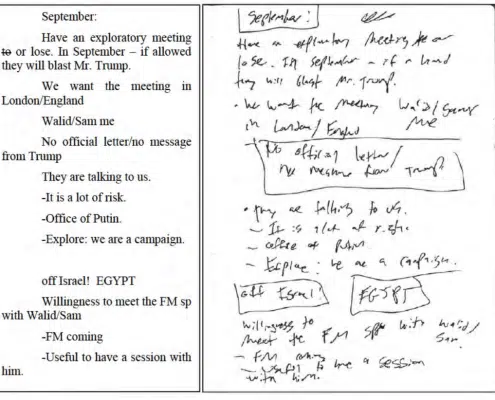 September:
Have an exploratory meeting
to or lose. In September – if allowed
they will blast Mr. Trump.
We want the meeting in
London/England
Walid/Sam me
No official letter/no message
from Trump
They are talking to us.
-It is a lot of risk.
-Office of Putin.
-Explore: we are a campaign.
off Israel! EGYPT
Willingness to meet the FM sp
with Walid/Sam
-FM coming
-Useful to have a session with
him.
September:
Have an exploratory meeting to or
lose. In September – if
they will blast Mr. Trump.
• We want the meeting Walid/Sam
in London/England me
No official letter/
no message from Trump
• They are talking to us.
– It is a lot of risk.
– office of Putin.
– Explore: we are a campaign.
off Israel! EGYPT
Willingness to
meet the FM sp with Walid/
Sam.
– FM coming
– Useful to have a session
with him.